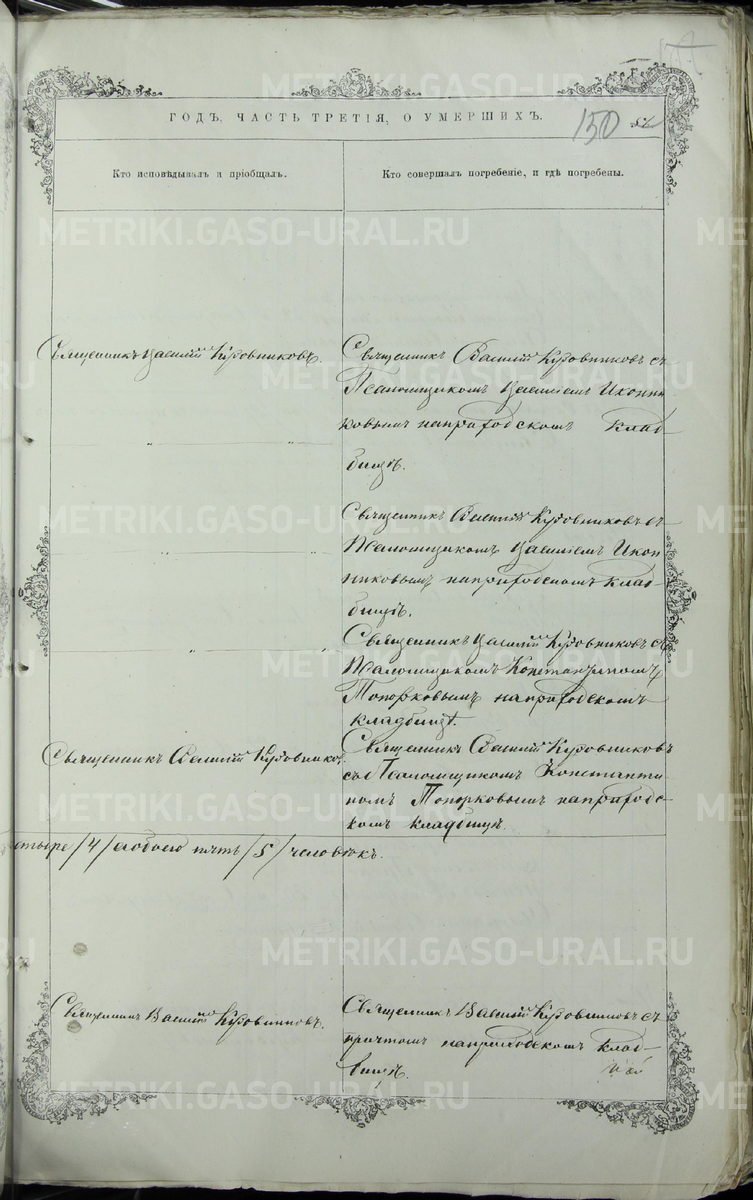 ГОДЪ, ЧАСТЬ ТРЕТІЯ, О УМЕРШИХЪ.
150
Кто исповѣдывалъ и пріобщалъ.
Кто совершалъ погребеніе, и гдѣ погребены.
Священникъ Василій Кудовниковъ.
Священникъ Василій Кудовниковъ съ
Псаломщикомъ Василіемъ Иконни-
ковымъ на приходскомъ клад-
бищѣ.
Священникъ Василій Кудовниковъ съ
Псаломщикомъ Василіемъ Икон-
никовымъ на приходскомъ клад-
бищѣ.
Священникъ Василій Кудовниковъ съ
Псаломщикомъ Константиномъ
Топорковымъ на приходскомъ
кладбищѣ.
Священникъ Василій Кудовниковъ
Священникъ Василій Кудовниковъ
съ Псаломщикомъ Константи-
номъ Топорковымъ на приходс-
комъ кладбищѣ.
етыре /4/ а обоего пять /5/ человѣкъ.
Священникъ Василій Кудовниковъ.
Священникъ Василій Кудовниковъ съ
причтомъ на приходскомъ клад-
бищѣ.
METRIKI.GASO-URAL.RU